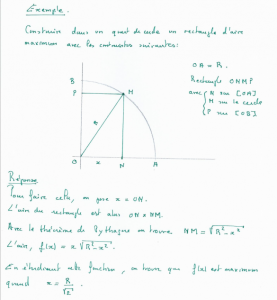 Exemple.
Construire dans un quart de cercle un rectangle d'aire
maximum avec les contraintes suivantes:
OA = R.
Rectangle ONMP
avec N sur [OA]
M sur le cercle
P sur [OB]
B
P
M
R
O
x
N
A
Réponse
Pour faire cela, on pose x = ON.
L'aire du rectangle est alors ON × NM.
Avec le théorème de Pythagore on trouve NM = √R² - x²
L'aire, f(x) = x √R² - x².
En étudiant cette fonction, on trouve que f(x) est maximum
quand x = R/√2.